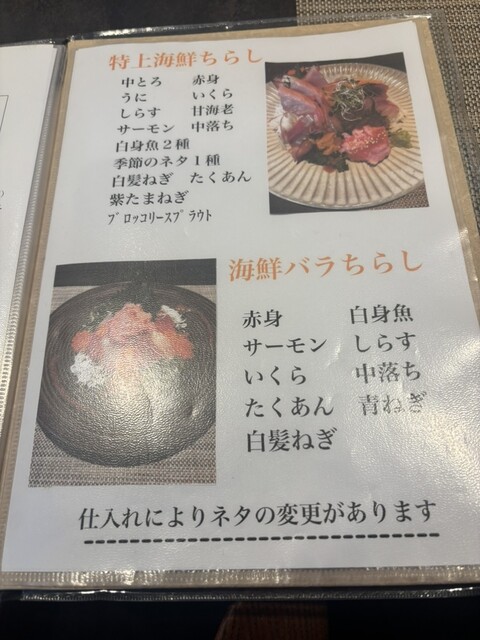 特上海鮮ちらし
中とろ 赤身
うに いくら
しらす 甘海老
サーモン 中落ち
白身魚２種
季節のネタ１種
白髪ねぎ たくあん
紫たまねぎ
ﾌﾞﾛｯｺﾘｰｽﾌﾟﾗｳﾄ
海鮮バラちらし
赤身 白身魚
サーモン しらす
いくら 中落ち
たくあん 青ねぎ
白髪ねぎ
仕入れによりネタの変更があります